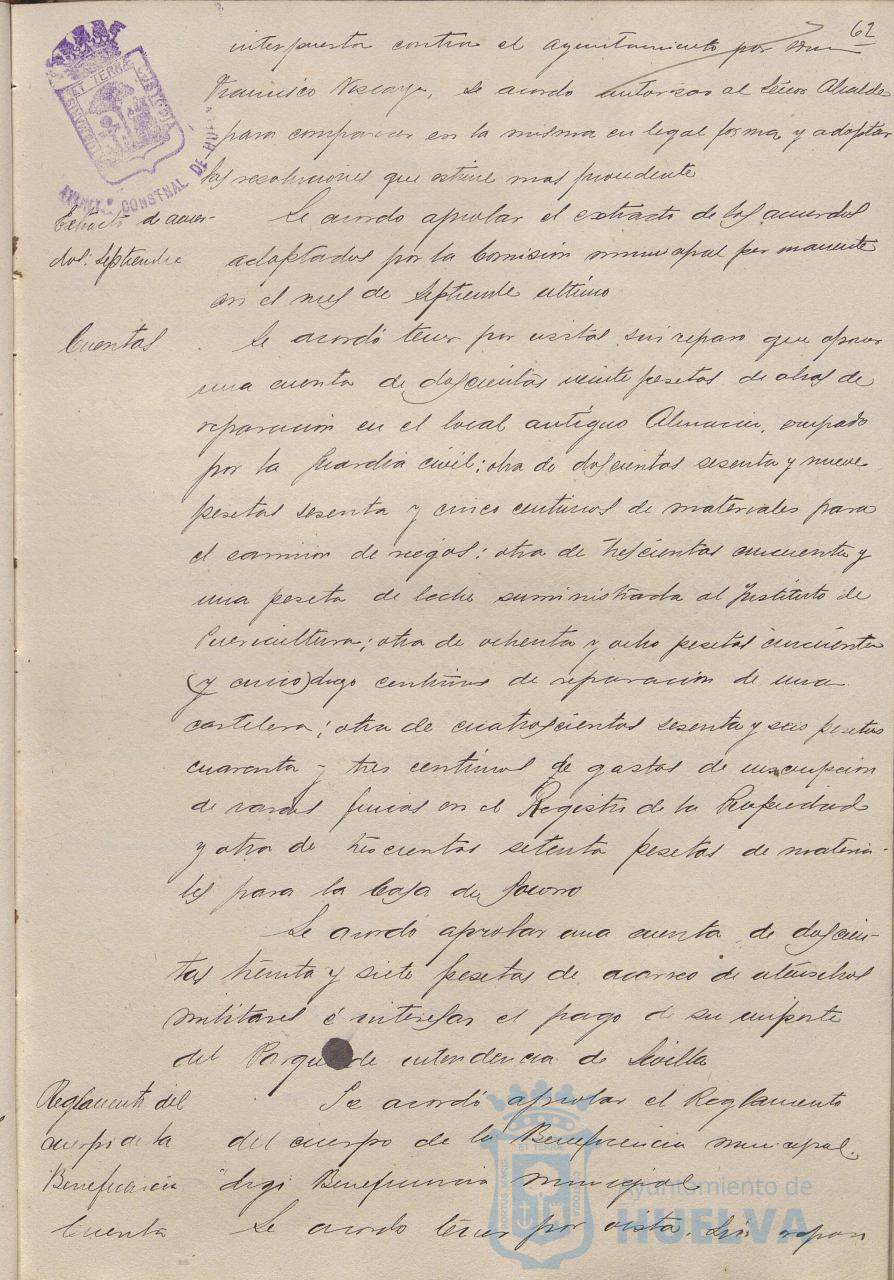 62
interpuesta contra el Ayuntamiento por Don
Francisco Vizcaya, se acordo autorizar al Señor Alcalde
para comparecer en la misma en legal forma y adoptar
las resoluciones que estime mas procedente
Extracto de acuer-
dos: Septiembre
Se acordo aprobar el extracto de los acuerdos
adoptados por la Comisión municipal permanente
en el mes de Septiembre ultimo
Cuentas
Se acordó tener por vistas sin reparo que oponer
una cuenta de doscientas veinte pesetas de obras de
reparación en el local antiguo Almacen, ocupado
por la Guardia civil; otra de doscientas sesenta y nueve
pesetas sesenta y cinco centimos de materiales para
el camion de riegos: otra de trescientas cincuenta y
una peseta de leche suministrada al Instituto de
Puericultura; otra de ochenta y ocho pesetas cincuenta
(y cinco) digo centimos de reparación de una
cartelera; otra de cuatroscientas sesenta y seis pesetas
cuarenta y tres centimos de gastos de inscripcion
de varias fincas en el Registro de la Propiedad
y otra de trescientas setenta pesetas de materia-
les para la Casa de Socorro
Se acordó aprobar una cuenta de doscien-
tas treinta y siete pesetas de acarreo de utensilios
militares é interesar el pago de su importe
del Parque de intendencia de Sevilla
Reglamento del
cuerpo de la
Beneficencia
Se acordó aprobar el Reglamento
del cuerpo de la Beneficencia municipal.
digo Beneficencia municipal
Cuenta
Se acordo tener por vista. sin repar
ET TERRÆ
CUSTODIA
AYUNT.º CONSTNAL DE HUELVA
PORTUS MARIS
ET TERRÆ
CUSTODIA
Ayuntamiento de
HUELVA